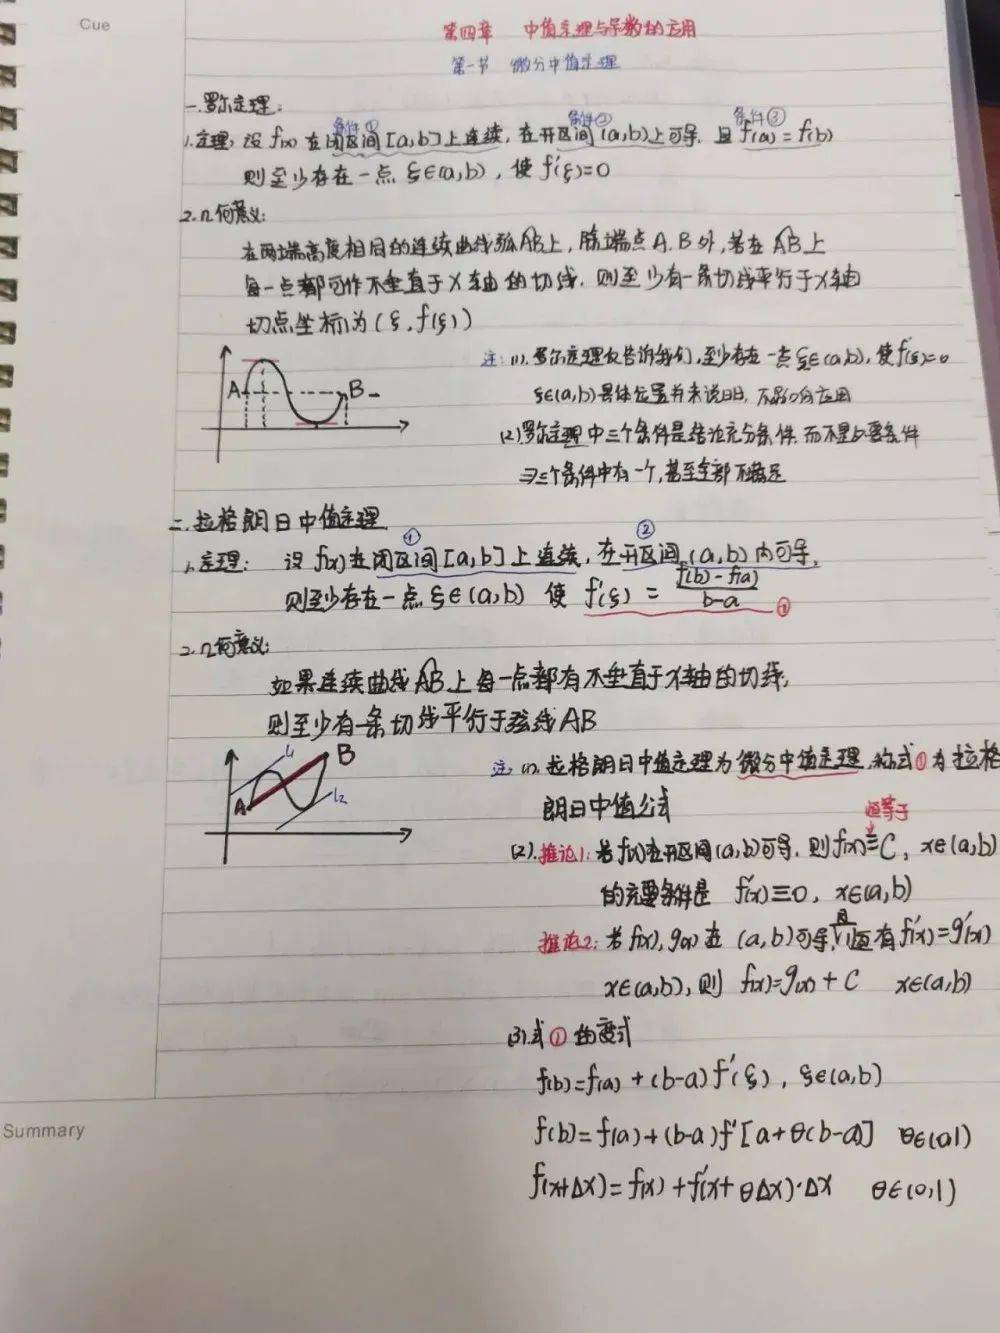 Cue
第四章 中值定理与导数的应用
第一节 微分中值定理
一.罗尔定理:
条件① 条件② 条件③
1.定理: 设 f(x) 在闭区间 [a,b] 上连续, 在开区间 (a,b) 上可导, 且 f(a) = f(b)
则至少存在一点 ξ∈(a,b), 使 f'(ξ)=0
2.几何意义:
在两端高度相同的连续曲线弧AB上, 除端点 A.B 外, 若在 AB 上
每一点都可作不垂直于X轴的切线, 则至少有一条切线平行于X轴
切点坐标为 (ξ, f(ξ))
A B
注: (1). 罗尔定理仅告诉我们, 至少存在一点 ξ∈(a,b), 使 f'(ξ)=0
ξ∈(a,b) 具体位置并未说明, 不影响应用
(2) 罗尔定理中三个条件是结论充分条件, 而不是必要条件
⇒三个条件中有一个, 甚至全部不满足
二. 拉格朗日中值定理
① ②
1.定理: 设 f(x) 在闭区间 [a,b] 上连续, 在开区间 (a,b) 内可导,
则至少存在一点 ξ∈(a,b) 使 f'(ξ) = f(b)-f(a) / b-a ①
2.几何意义:
如果连续曲线 AB 上每一点都有不垂直于X轴的切线,
则至少有一条切线平行于弦线AB
A B L1 L2
注: (1). 拉格朗日中值定理为微分中值定理, 称式①为拉格
朗日中值公式
恒等于
(2). 推论1: 若 f(x) 在开区间 (a,b) 可导, 则 f(x)≡C, x∈(a,b)
的充要条件是 f'(x)≡0, x∈(a,b)
推论2: 若 f(x), g(x) 在 (a,b) 可导, 且恒有 f'(x)=g'(x)
x∈(a,b), 则 f(x)=g(x)+C x∈(a,b)
(3).式①的变式
f(b)=f(a)+(b-a)f'(ξ), ξ∈(a,b)
f(b)=f(a)+(b-a)f'[a+θ(b-a)] θ∈(0,1)
f(x+Δx)=f(x)+f'(x+θΔx)·Δx θ∈(0,1)
Summary